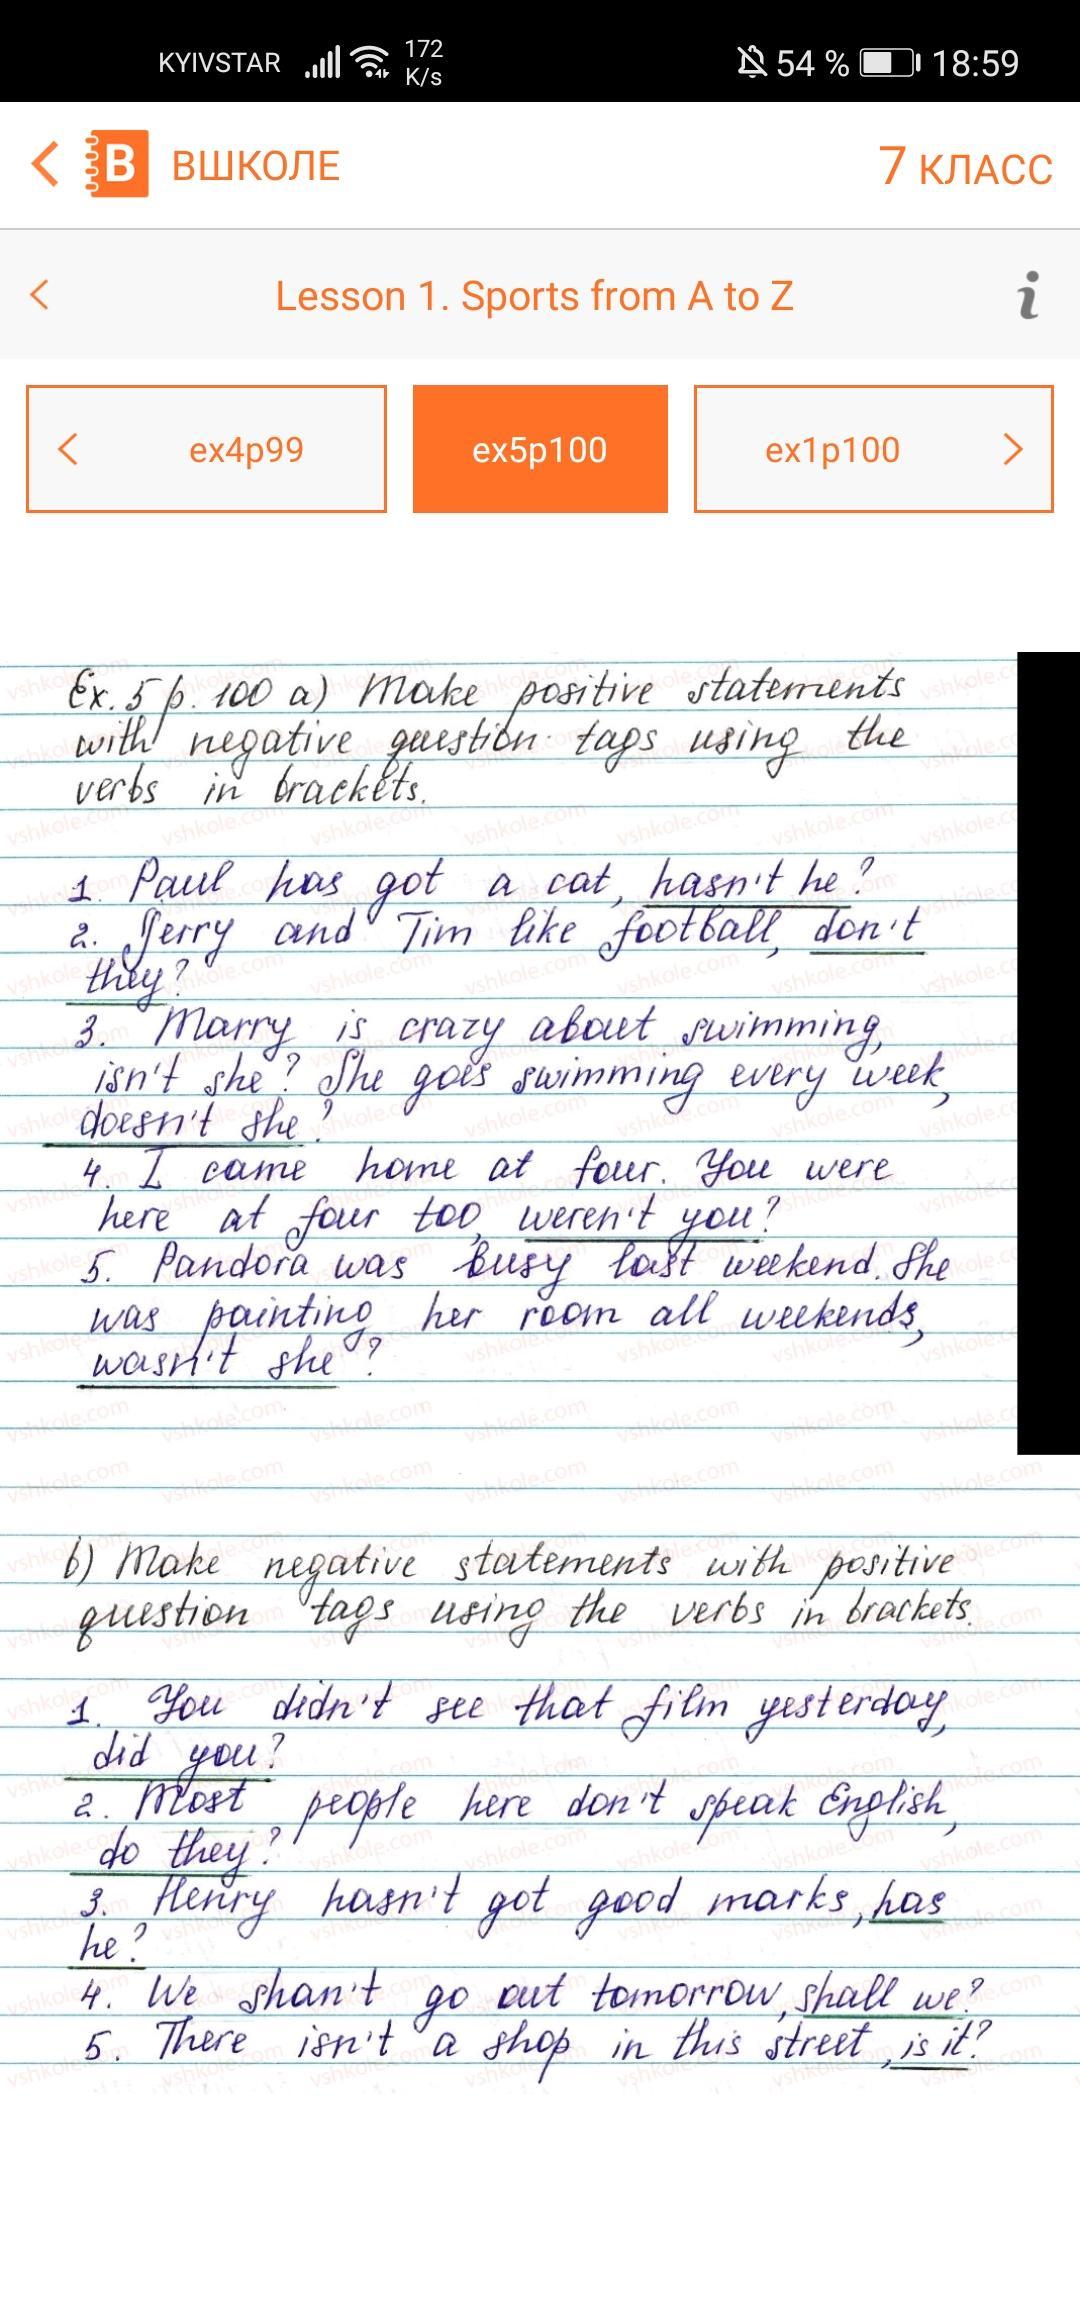 KYIVSTAR 172 K/s 54 % 18:59
B ВШКОЛЕ 7 КЛАСС
Lesson 1. Sports from A to Z i
ex4p99 ex5p100 ex1p100
Ex. 5 p. 100 a) Make positive statements
with negative question tags using the
verbs in brackets.
1. Paul has got a cat, hasn't he?
2. Jerry and Tim like football, don't
they?
3. Marry is crazy about swimming,
isn't she? She goes swimming every week,
doesn't she?
4. I came home at four. You were
here at four too, weren't you?
5. Pandora was busy last weekend. She
was painting her room all weekends,
wasn't she?
b) Make negative statements with positive
question tags using the verbs in brackets.
1. You didn't see that film yesterday,
did you?
2. Most people here don't speak English,
do they?
3. Henry hasn't got good marks, has
he?
4. We shan't go out tomorrow, shall we?
5. There isn't a shop in this street, is it?